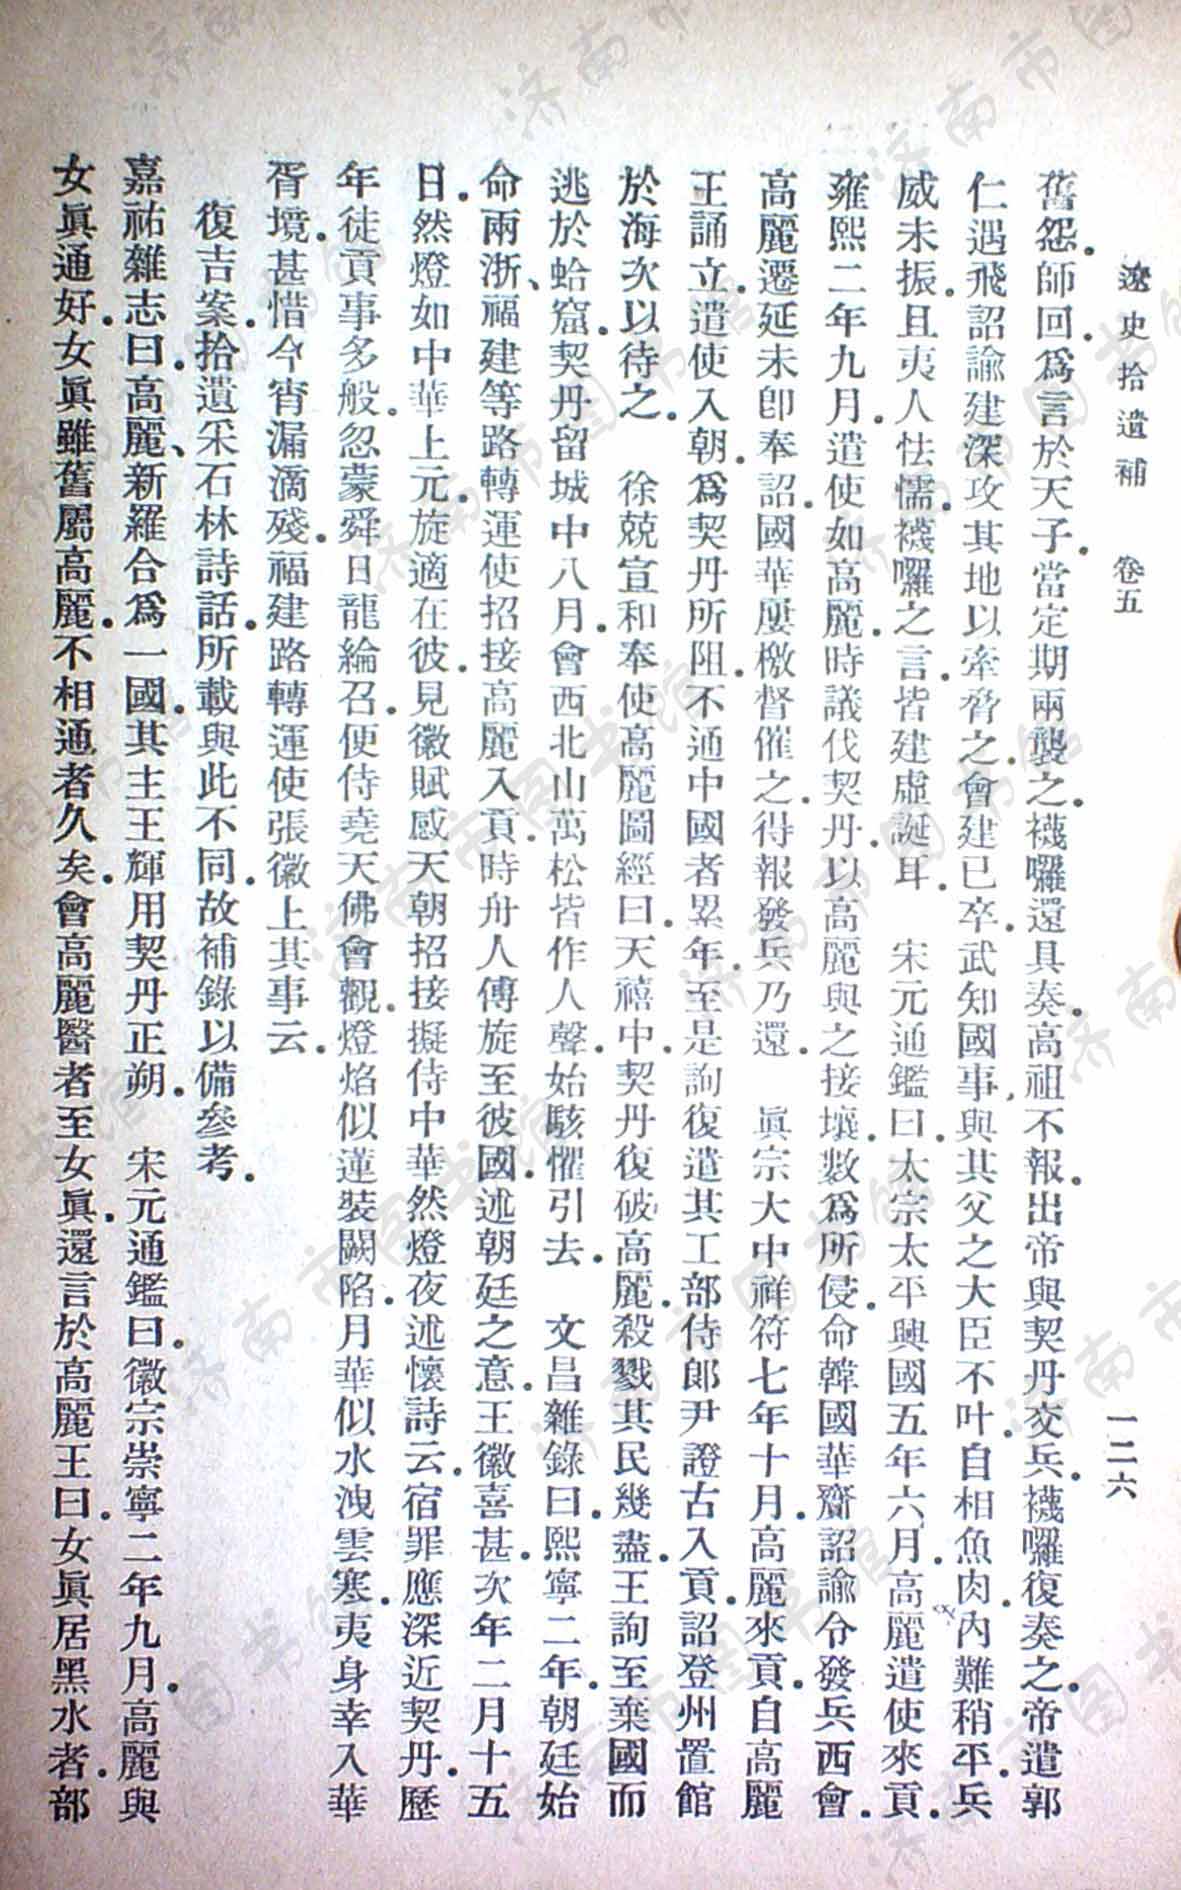 遼史拾遺補　卷五　一二六
舊怨師回爲言於天子當定期兩襲之襪囉還具奏高祖不報出帝與契丹交兵襪囉復奏之帝遣郭
仁遇飛詔諭建深攻其地以牽脅之會建已卒武知國事與其父之大臣不叶自相魚肉內難稍平兵
威未振且夷人怯懦襪囉之言皆建虛誕耳　宋元通鑑曰太宗太平興國五年六月高麗遣使來貢
雍熙二年九月遣使如高麗時議伐契丹以高麗與之接壤數爲所侵命韓國華齎詔諭令發兵西會
高麗遷延未卽奉詔國華屢檄督催之得報發兵乃還　眞宗大中祥符七年十月高麗來貢自高麗
王誦立遣使入朝爲契丹所阻不通中國者累年至是詢復遣其工部侍郞尹證古入貢詔登州置館
於海次以待之　徐兢宣和奉使高麗圖經曰天禧中契丹復破高麗殺戮其民幾盡王詢至棄國而
逃於蛤窟契丹留城中八月會西北山萬松皆作人聲始駭懼引去　文昌雜錄曰熙寧二年朝廷始
命兩浙福建等路轉運使招接高麗入貢時舟人傅旋至彼國述朝廷之意王徽喜甚次年二月十五
日然燈如中華上元旋適在彼見徽賦感天朝招接擬侍中華然燈夜述懷詩云宿罪應深近契丹歷
年徒貢事多般忽蒙舜日龍綸召便侍堯天佛會觀燈焰似蓮裝闕陷月華似水洩雲寒夷身幸入華
胥境甚惜今宵漏滴殘福建路轉運使張徽上其事云
復吉案拾遺采石林詩話所載與此不同故補錄以備參考
嘉祐雜志曰高麗新羅合爲一國其主王輝用契丹正朔　宋元通鑑曰徽宗崇寧二年九月高麗與
女眞通好女眞雖舊屬高麗不相通者久矣會高麗醫者至女眞還言於高麗王曰女眞居黑水者部